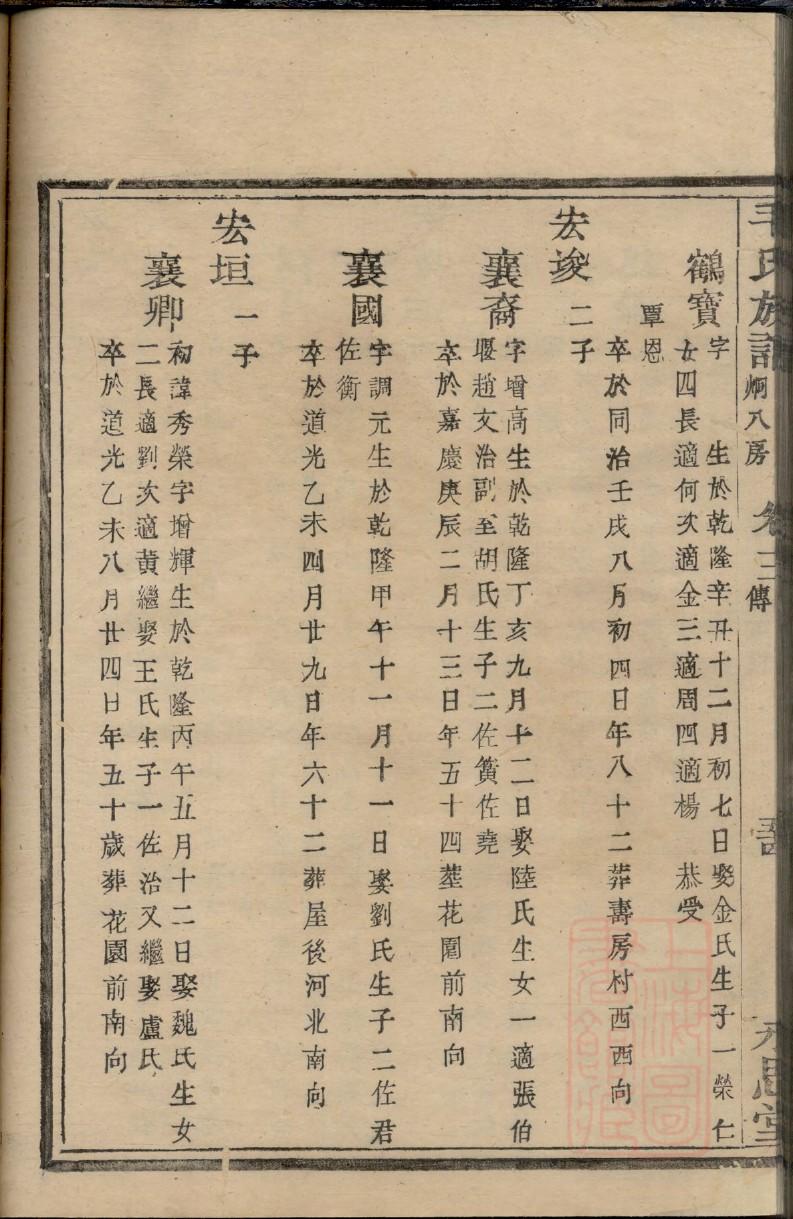 毛氏族譜 烱八房 卷三傳 永思堂
鶴寶
字 生於乾隆辛丑十二月初七日娶金氏生子一榮仁
女四長適何次適金三適周四適楊 恭受
覃恩
卒於同治壬戌八月初四日年八十二葬壽房村西西向
宏堎
二子
襄裔
字增高生於乾隆丁亥九月十二日娶陸氏生女一適張伯
堰趙文治副室胡氏生子二佐簧佐堯
卒於嘉慶庚辰二月十三日年五十四葬花園前南向
襄國
字調元生於乾隆甲午十一月十一日娶劉氏生子二佐君
佐衡
卒於道光乙未四月廿九日年六十二葬屋後河北南向
宏垣
一子
襄卿
初諱秀榮字增輝生於乾隆丙午五月十二日娶魏氏生女
二長適劉次適黄繼娶王氏生子一佐治又繼娶盧氏
卒於道光乙未八月廿四日年五十歲葬花園前南向